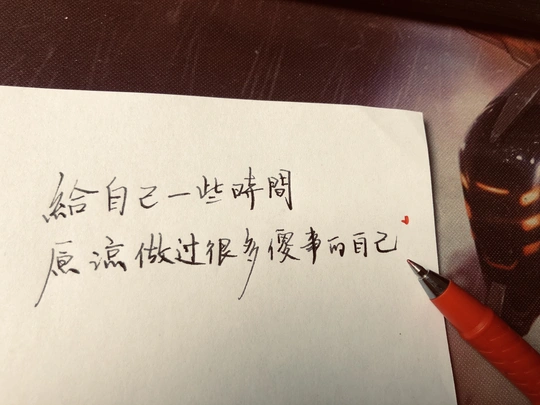 給自己一些時間
原谅做过很多傻事的自己